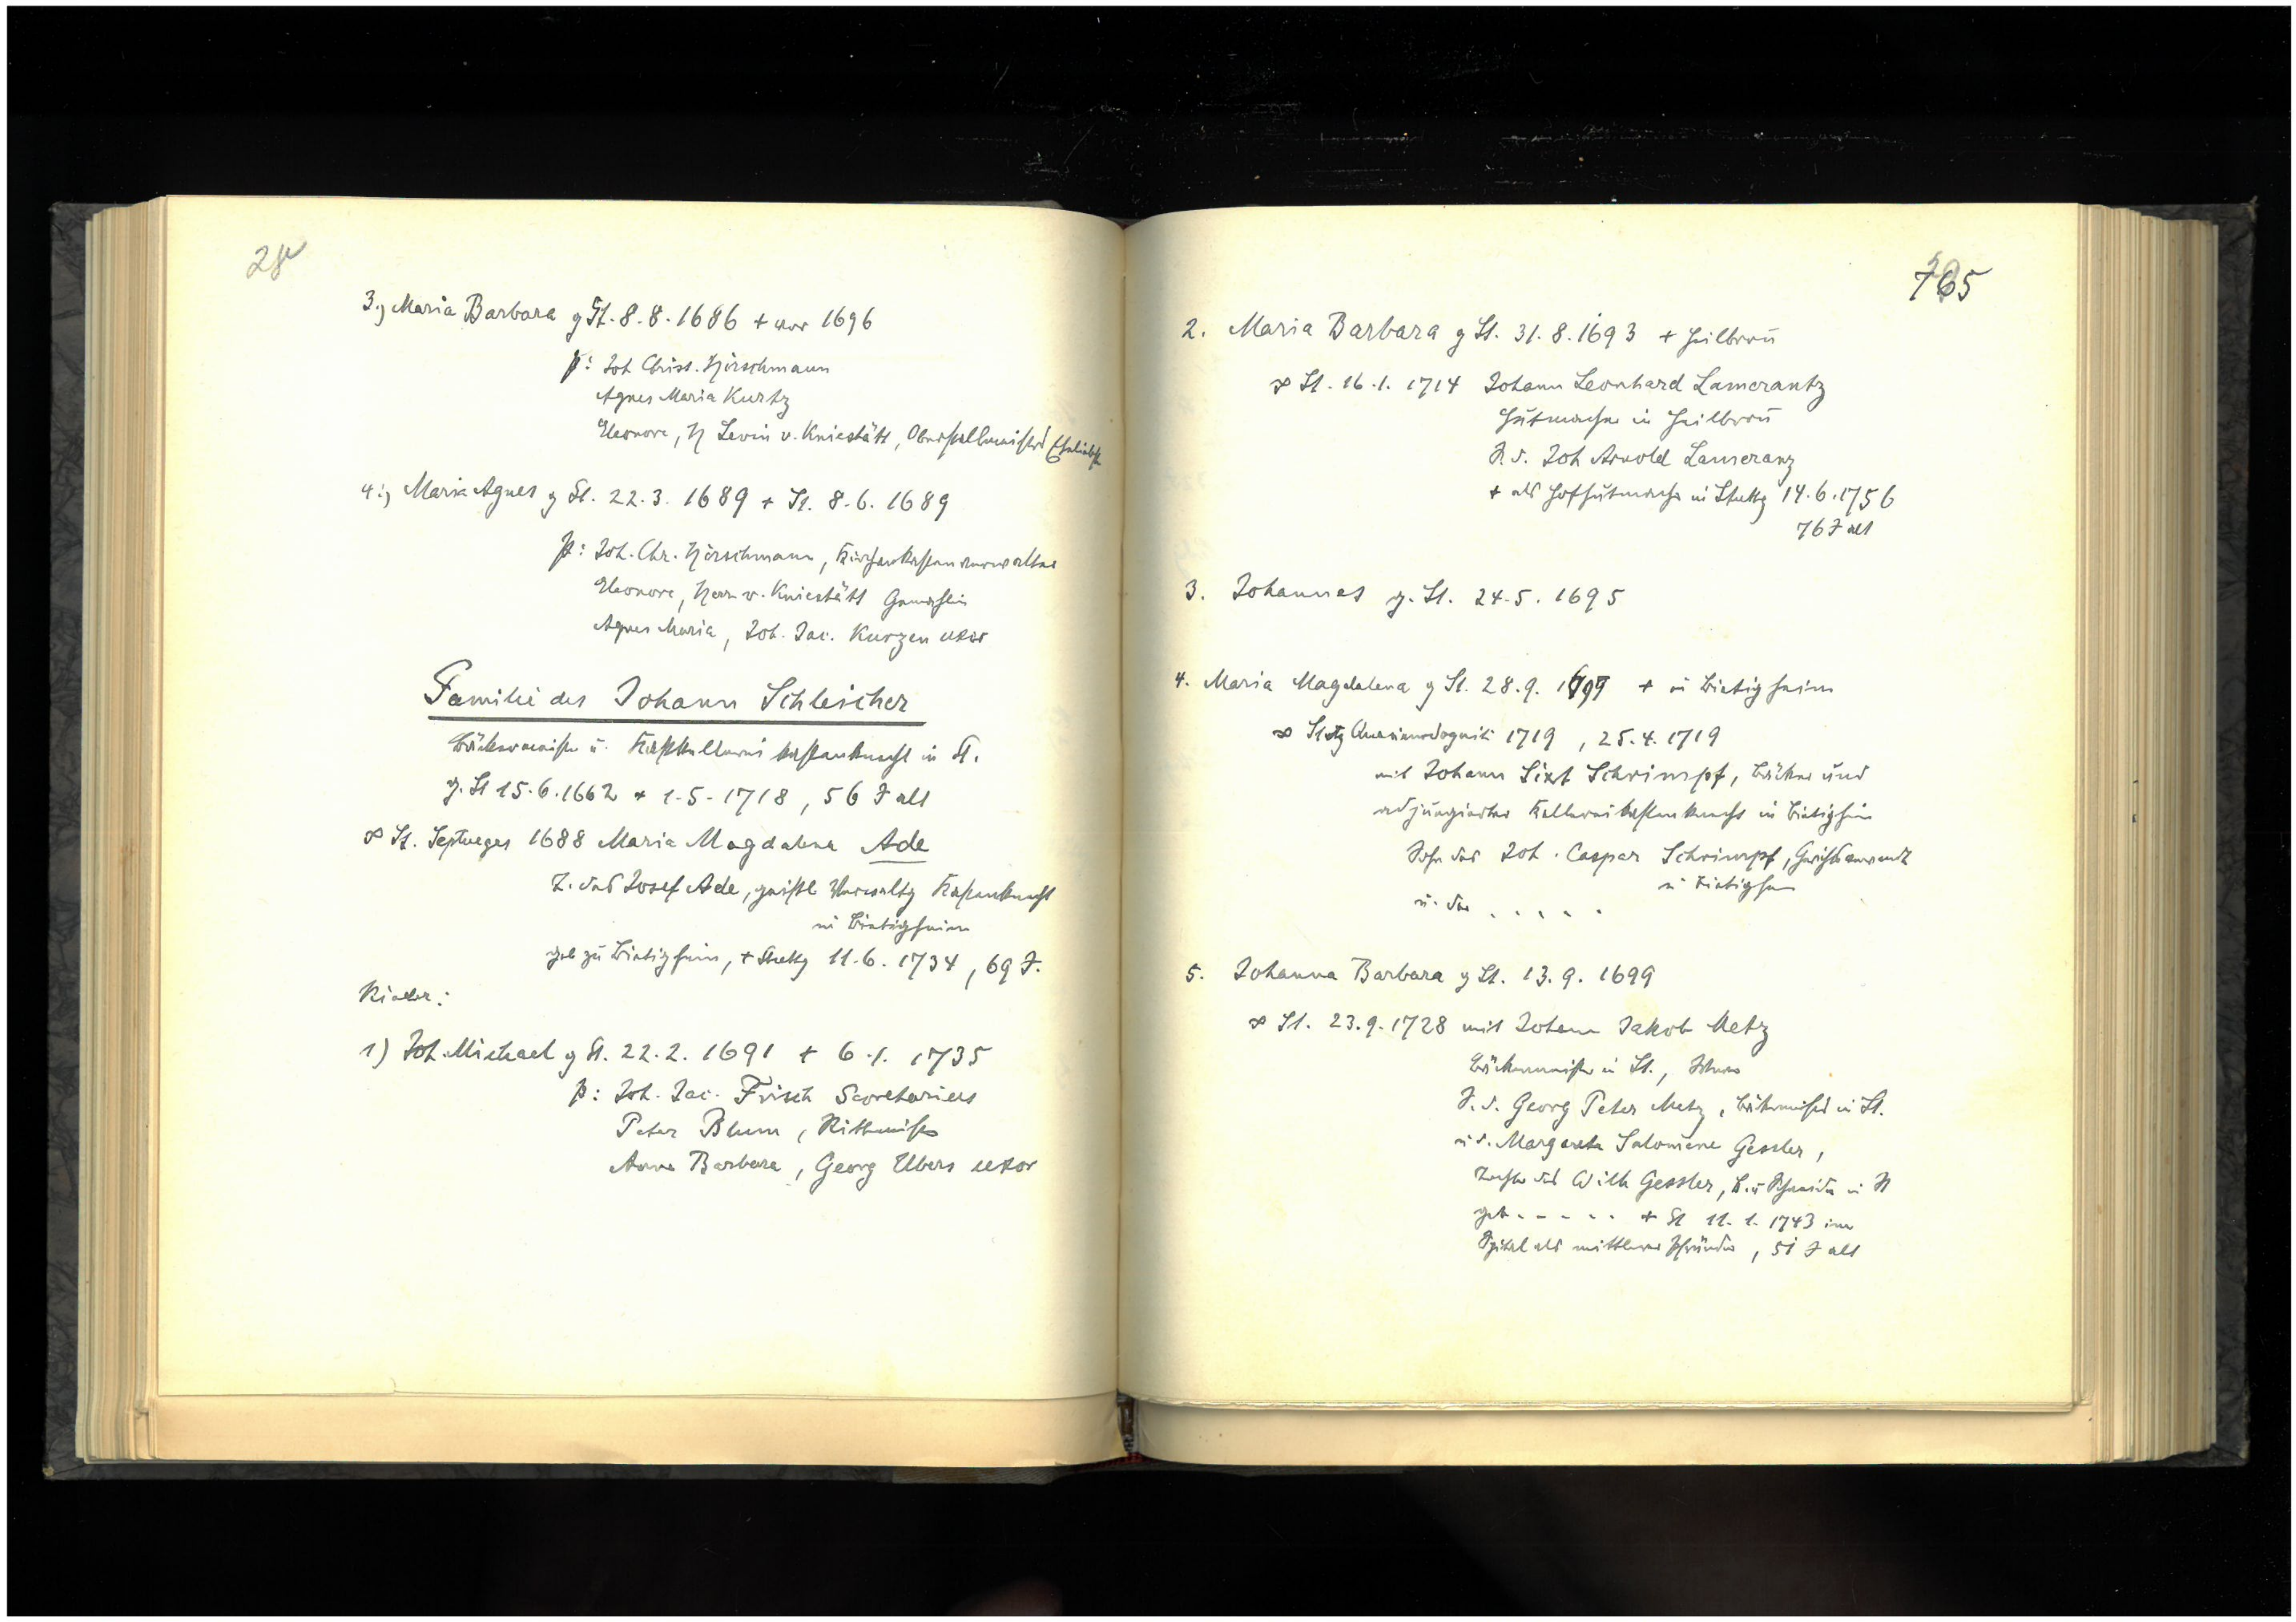 28
3.) Maria Barbara g St. 8.8.1686 + vor 1696
p: Joh Christ. Hörschmann
Agnes Maria Kurtz
Eleonore, H Levin v. Kniestätt, Oberstallmeisters Eheliebste
4.) Maria Agnes g St. 22.3.1689 + St. 8.6.1689
p: Joh. Chr. Hörschmann, Kirchenkastenverwalter
Eleonore, Herrn v. Kniestätt Gemahlin
Agnes Maria, Joh. Jac. Kurzen uxor
Familie des Johann Schleicher
Bäckermeister u. Kastkellerei kastenknecht in St.
g. St 15.6.1662 + 1.5.1718, 56 J alt
∞ St. Septuages 1688 Maria Magdalena Ade
T. des Josef Ade, geistl Verwaltg Kastenknecht
in Bietigheim
geb zu Bietigheim, + Stuttg 11.6.1734, 69 J.
Kinder:
1) Joh. Michael g St. 22.2.1691 + 6.1.1735
p: Joh. Jac. Frisch Secretarius
Peter Blum, Rittmeister
Anna Barbara, Georg Ulbers uxor
765
2. Maria Barbara g St. 31.8.1693 + Heilbronn
∞ St. 16.1.1714 Johann Leonhard Lamerantz
Hutmacher in Heilbronn
S. d. Joh Arnold Lameranz
+ als Hofhutmacher in Stuttg 14.6.1756
76 J alt
3. Johannes g. St. 24.5.1695
4. Maria Magdalena g St. 28.9.1697 + in Bietigheim
∞ Stutg Quasimodogeniti 1719, 25.4.1719
mit Johann Sixt Schrimpf, Bäcker und
adjungierter Kellereikastenknecht in Bietigheim
Sohn des Joh. Caspar Schrimpf, Gerichtsverwandt
in Bietigheim
u. der . . . . .
5. Johanna Barbara g St. 13.9.1699
∞ St. 23.9.1728 mit Johann Jakob Metz
Bäckermeister in St.,
S. d. Georg Peter Metz, Bäckermeister in St.
u d. Margareta Salomene Gessler,
Tochter des Wilh Gessler, B. u Schneider in St
geb . - - - . . + St 11.1.1743 im
Spital als mittlerer Pfründer, 51 J alt